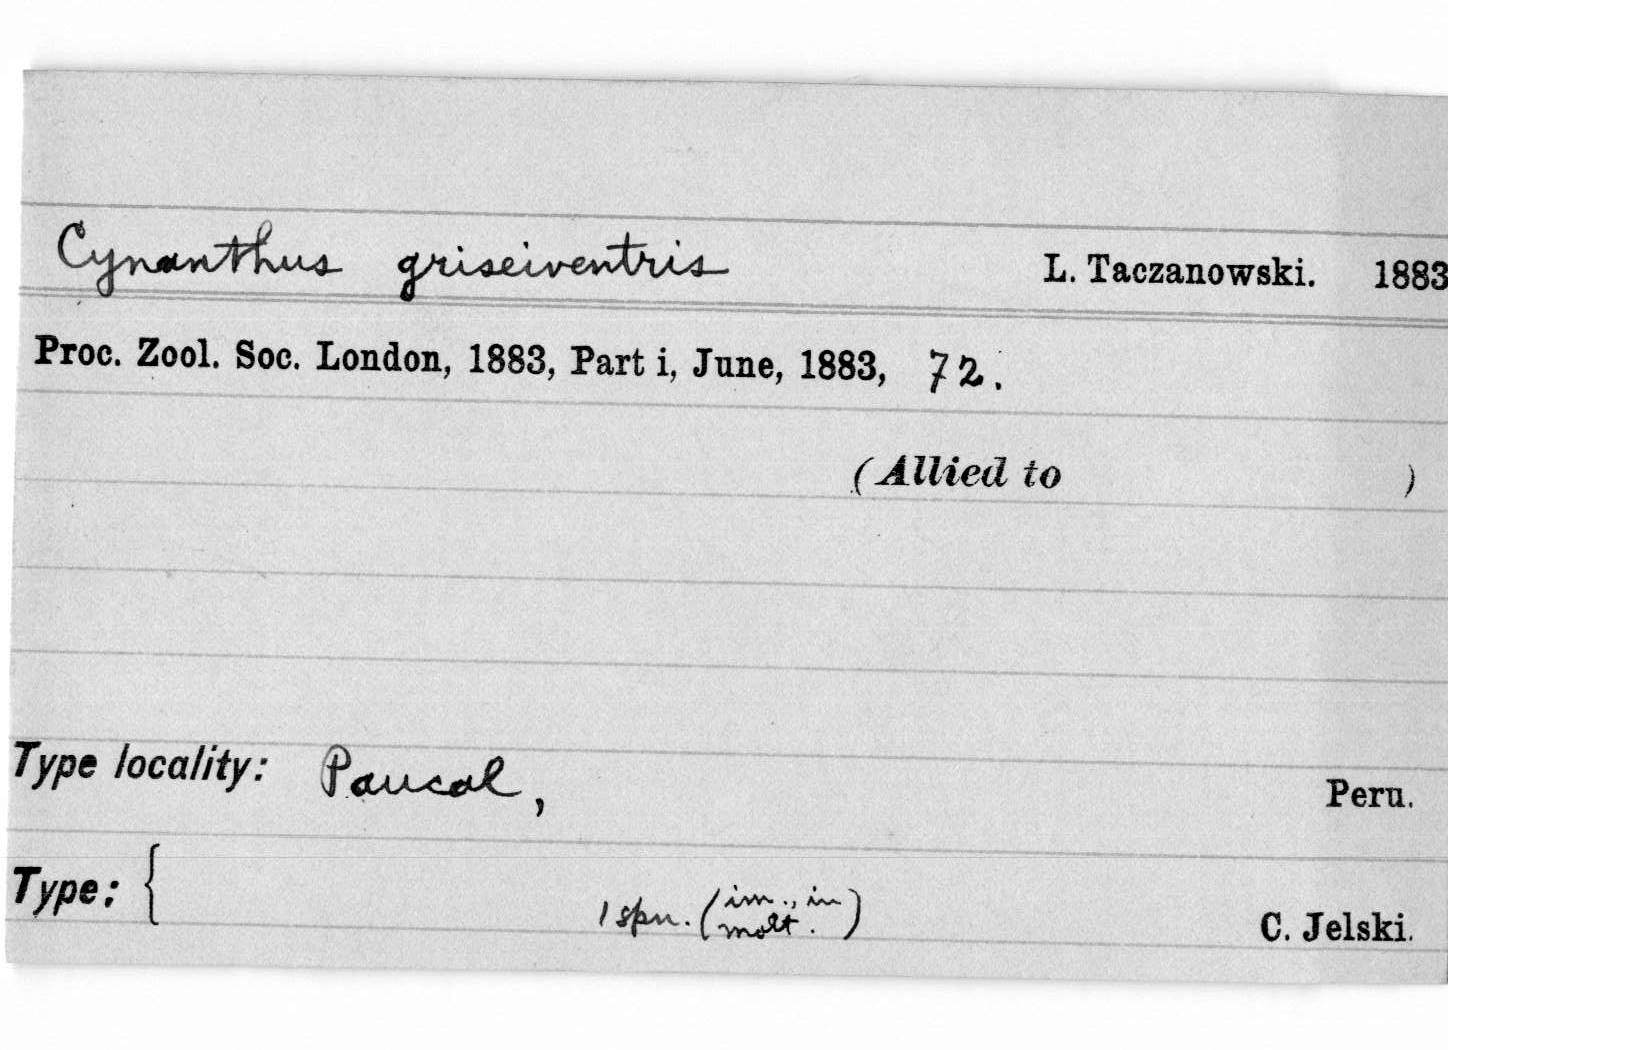 Cynanthus griseiventris L. Taczanowski. 1883
Proc. Zool. Soc. London, 1883, Part i, June, 1883, 72.
(Allied to )
Type locality: Paucal, Peru.
Type: { 1 spn. (im., in molt.) C. Jelski.